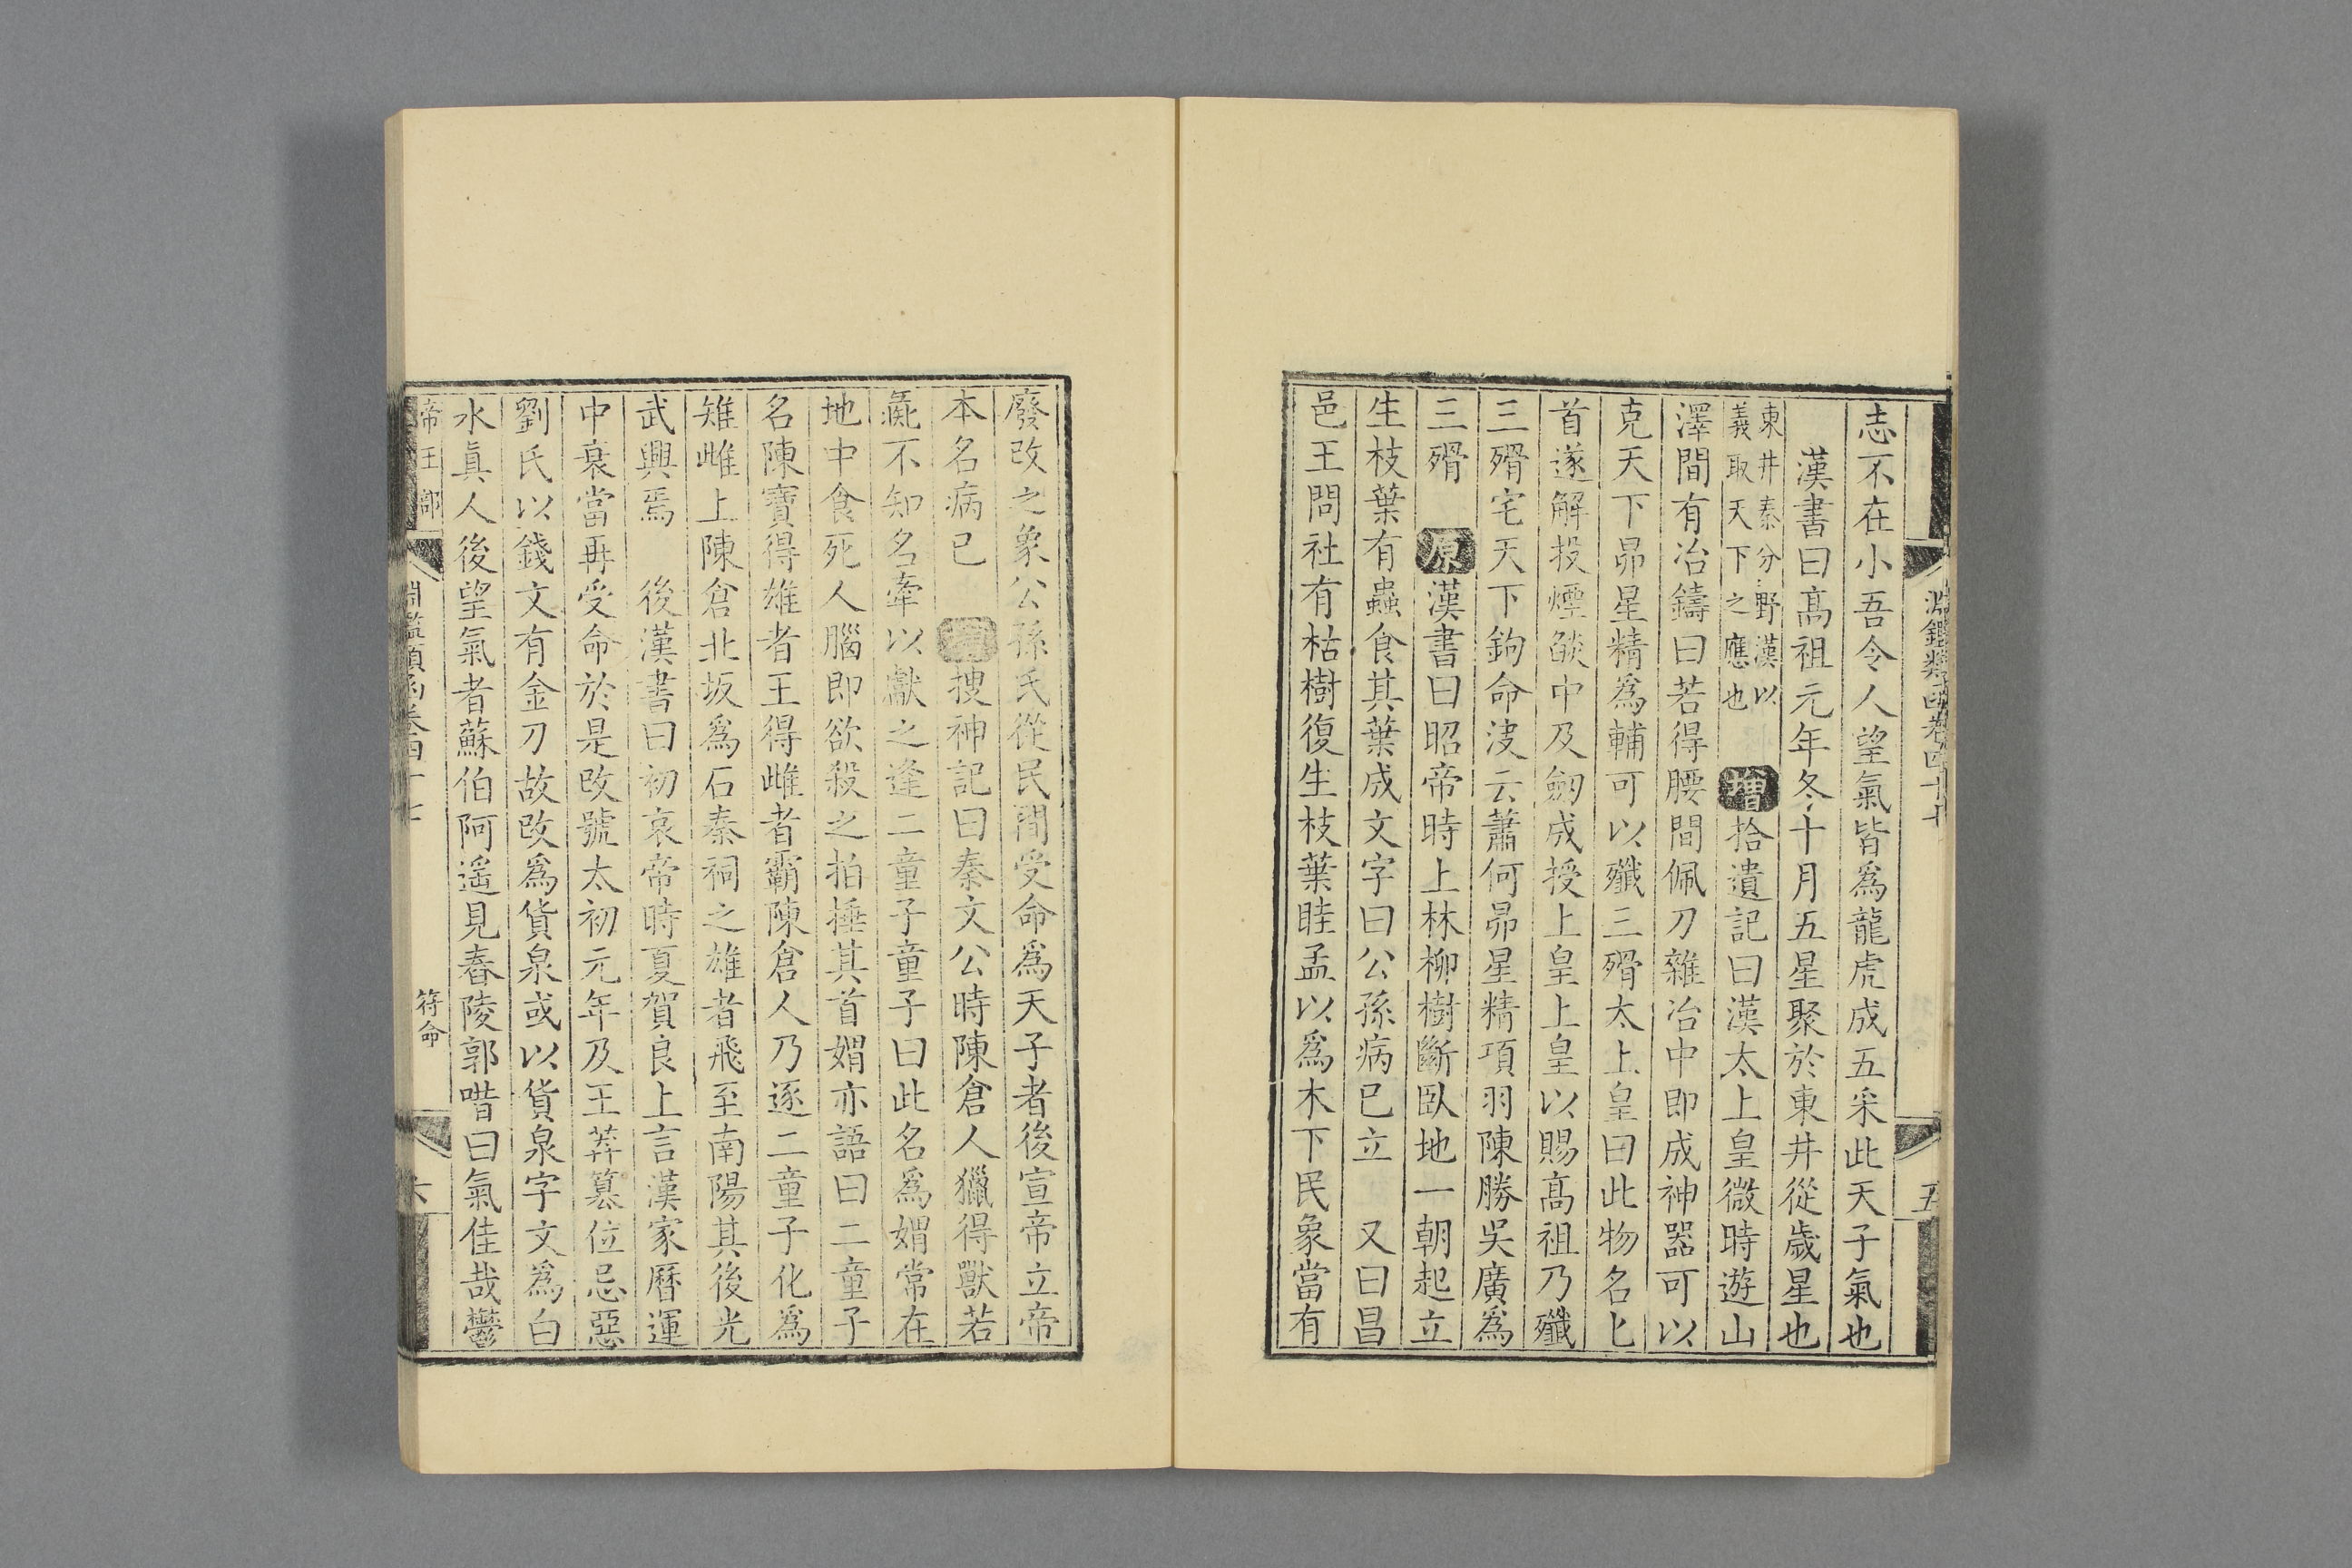 淵鑑類函卷四十七
五
志不在小吾令人望氣皆爲龍虎成五采此天子氣也
漢書曰高祖元年冬十月五星聚於東井從歲星也
東井秦分野漢以
義取天下之應也
增拾遺記曰漢太上皇微時遊山
澤間有冶鑄曰若得腰間佩刀雜冶中即成神器可以
克天下昴星精爲輔可以殲三猾太上皇曰此物名匕
首遂解投煙燄中及劒成授上皇上皇以賜高祖乃殲
三猾宅天下鉤命決云蕭何昴星精項羽陳勝吳廣爲
三猾 原漢書曰昭帝時上林柳樹斷臥地一朝起立
生枝葉有蟲食其葉成文字曰公孫病已立 又曰昌
邑王問社有枯樹復生枝葉眭孟以爲木下民象當有
廢改之象公孫氏從民間受命爲天子者後宣帝立帝
本名病已 增搜神記曰秦文公時陳倉人獵得獸若
彘不知名牽以獻之逢二童子童子曰此名爲媦常在
地中食死人腦即欲殺之拍捶其首媦亦語曰二童子
名陳寶得雄者王得雌者霸陳倉人乃逐二童子化爲
雉雌上陳倉北坂爲石秦祠之雄者飛至南陽其後光
武興焉 後漢書曰初哀帝時夏賀良上言漢家曆運
中衰當再受命於是改號太初元年及王莽篡位忌惡
劉氏以錢文有金刀故改爲貨泉或以貨泉字文爲白
水真人後望氣者蘇伯阿遥見舂陵郭唶曰氣佳哉鬱
帝王部
淵鑑類函卷四十七
符命
六